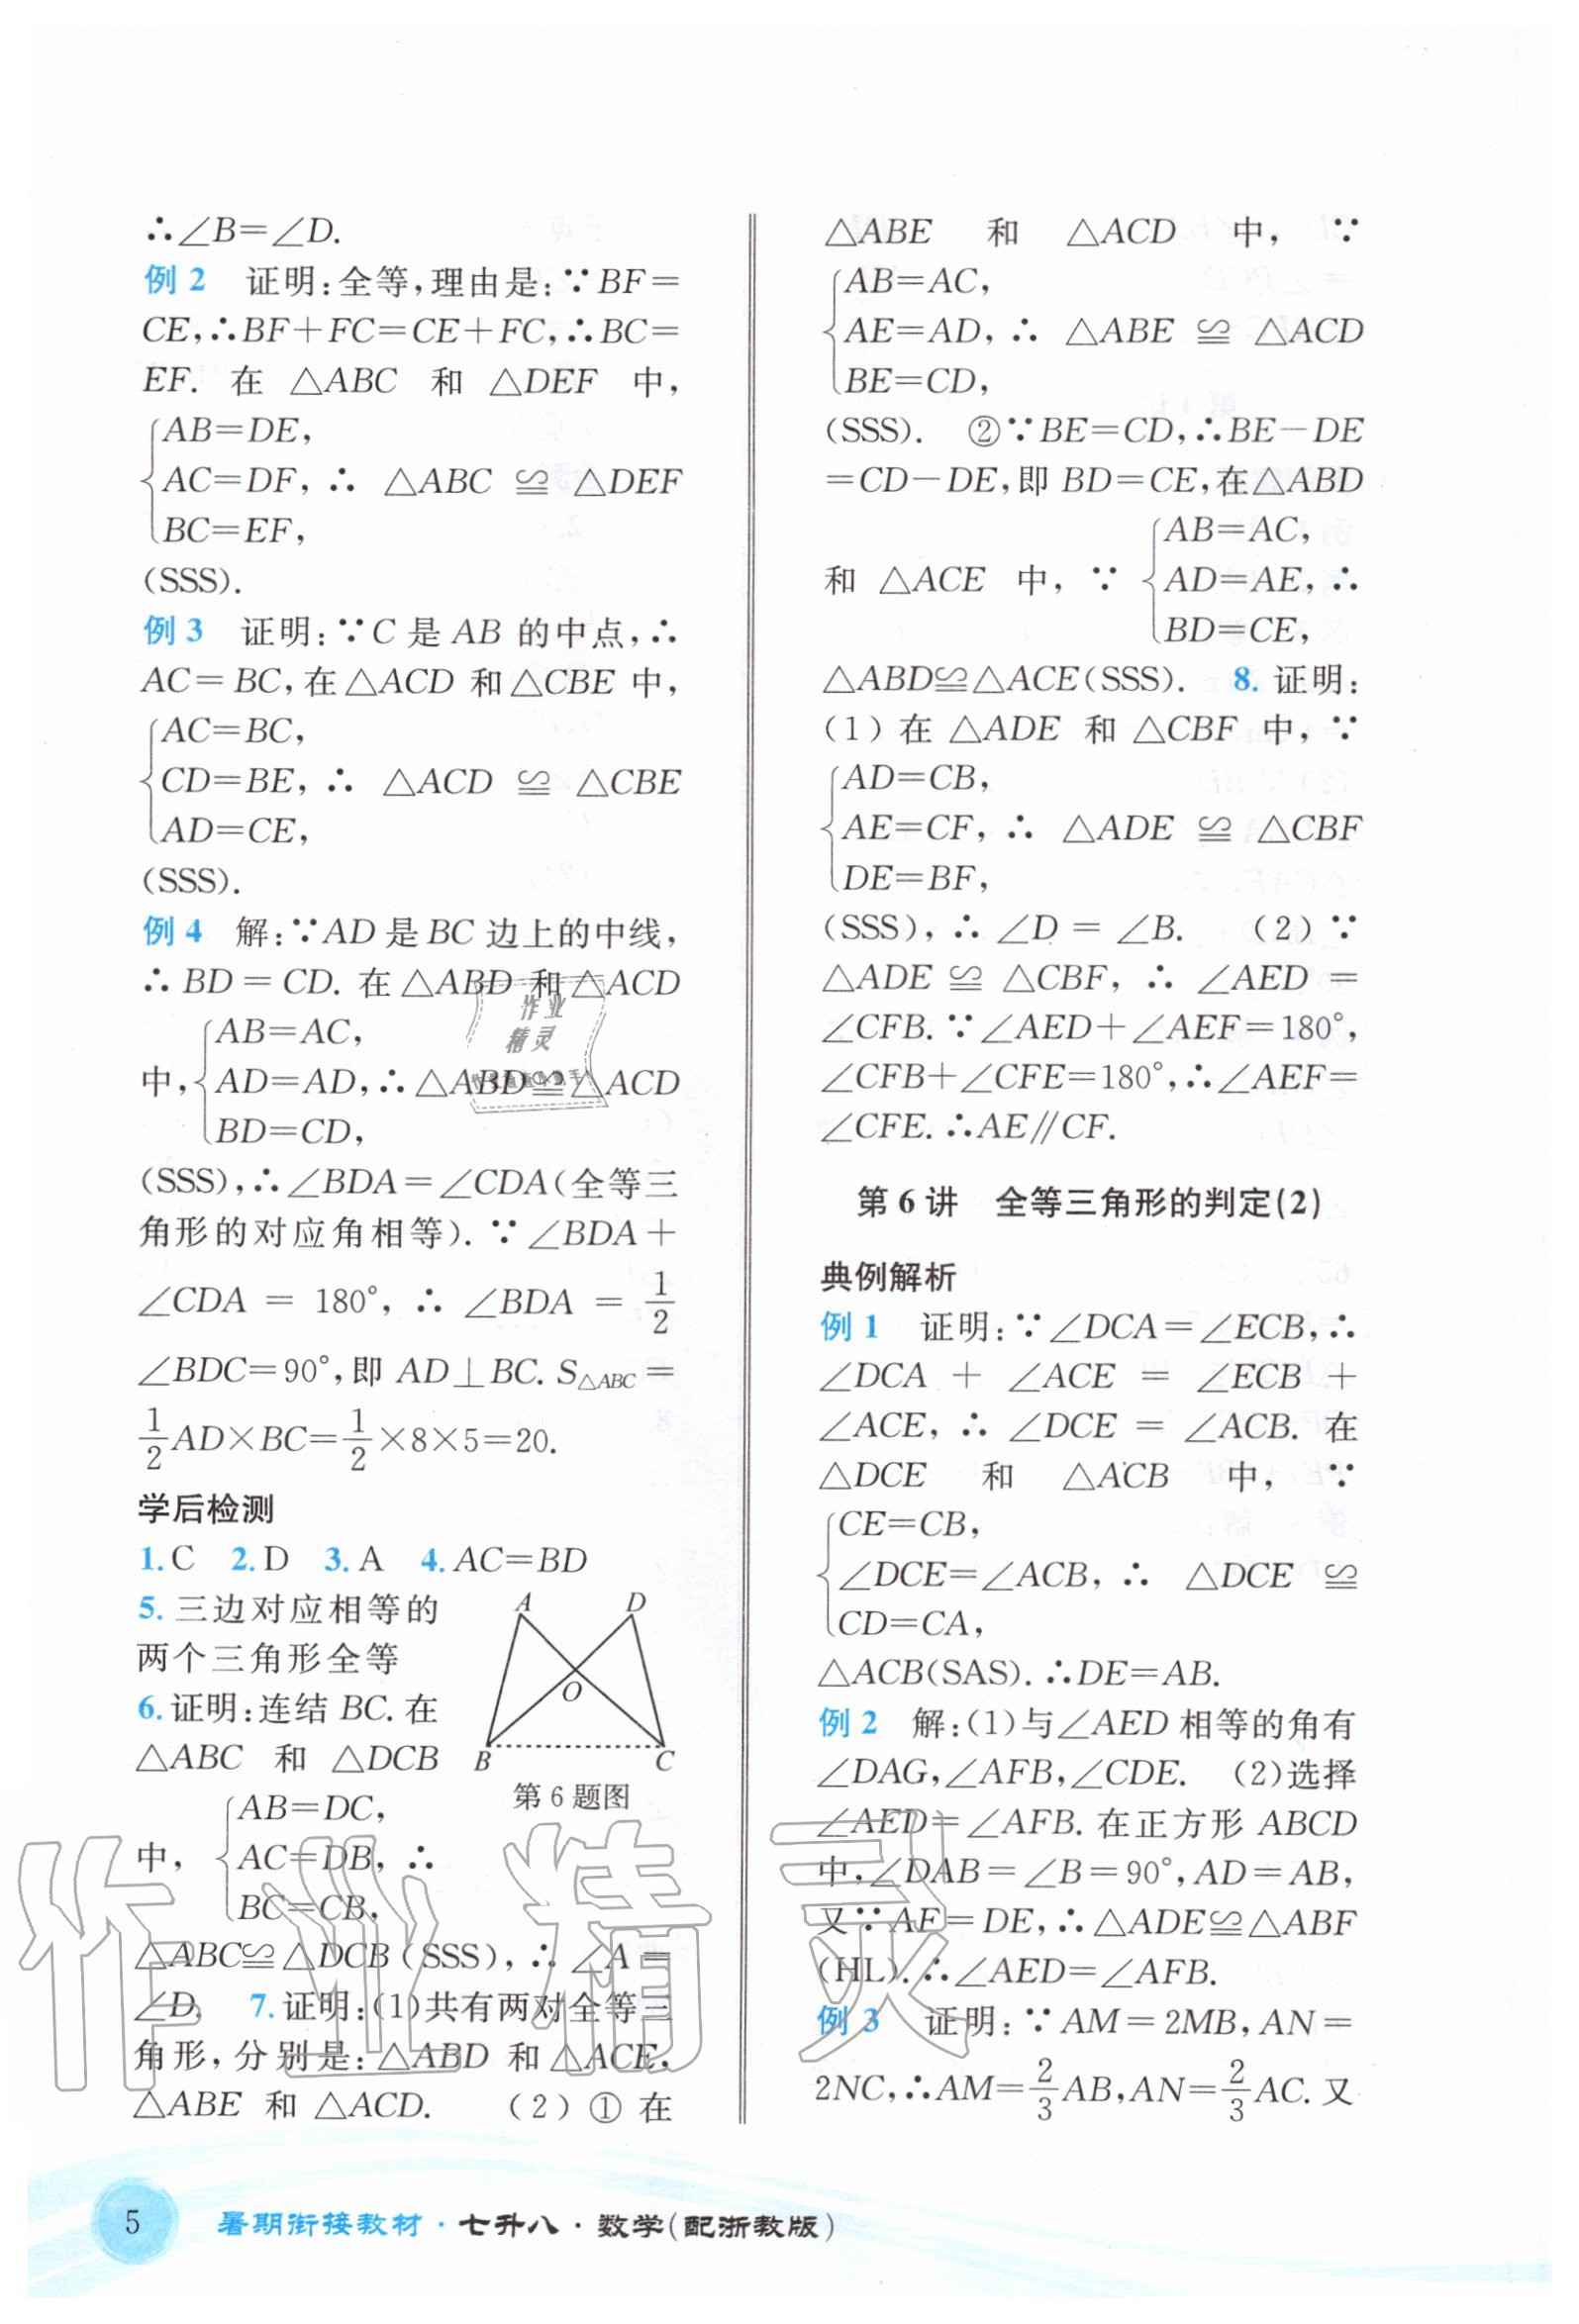 ∴∠B=∠D.
例2 证明:全等,理由是:∵BF=
CE,∴BF+FC=CE+FC,∴BC=
EF. 在 △ABC 和 △DEF 中,
AB=DE,
AC=DF, ∴ △ABC ≌ △DEF
BC=EF,
(SSS).
例3 证明:∵C 是 AB 的中点,∴
AC=BC,在△ACD 和△CBE 中,
AC=BC,
CD=BE, ∴ △ACD ≌ △CBE
AD=CE,
(SSS).
例4 解:∵AD 是 BC 边上的中线,
∴BD=CD. 在△ABD 和△ACD
AB=AC,
中,{AD=AD,∴△ABD≌△ACD
BD=CD,
(SSS),∴∠BDA=∠CDA(全等三
角形的对应角相等). ∵∠BDA+
∠CDA = 180°, ∴ ∠BDA = 1/2
∠BDC=90°,即 AD⊥BC. S△ABC=
1/2AD×BC=1/2×8×5=20.
学后检测
1. C 2. D 3. A 4. AC=BD
5. 三边对应相等的
两个三角形全等
6. 证明:连结 BC. 在
△ABC 和 △DCB
AB=DC,
中, {AC=DB, ∴
BC=CB,
A D
O
B C
第6题图
△ABC≌△DCB(SSS),∴∠A=
∠D. 7. 证明:(1)共有两对全等三
角形,分别是:△ABD 和△ACE,
△ABE 和 △ACD. (2)①在
△ABE 和 △ACD 中, ∵
AB=AC,
AE=AD, ∴ △ABE ≌ △ACD
BE=CD,
(SSS). ②∵BE=CD,∴BE-DE
=CD-DE,即 BD=CE,在△ABD
AB=AC,
和 △ACE 中, ∵ {AD=AE, ∴
BD=CE,
△ABD≌△ACE(SSS). 8. 证明:
(1)在 △ADE 和 △CBF 中, ∵
AD=CB,
AE=CF, ∴ △ADE ≌ △CBF
DE=BF,
(SSS), ∴ ∠D = ∠B. (2)∵
△ADE ≌ △CBF, ∴ ∠AED =
∠CFB. ∵∠AED+∠AEF=180°,
∠CFB+∠CFE=180°,∴∠AEF=
∠CFE. ∴AE∥CF.
第6讲 全等三角形的判定(2)
典例解析
例1 证明:∵∠DCA=∠ECB,∴
∠DCA + ∠ACE = ∠ECB +
∠ACE, ∴ ∠DCE = ∠ACB. 在
△DCE 和 △ACB 中, ∵
CE=CB,
∠DCE=∠ACB, ∴ △DCE ≌
CD=CA,
△ACB(SAS). ∴DE=AB.
例2 解:(1)与∠AED 相等的角有
∠DAG,∠AFB,∠CDE. (2)选择
∠AED=∠AFB. 在正方形 ABCD
中,∠DAB=∠B=90°,AD=AB,
又∵AF=DE,∴△ADE≌△ABF
(HL). ∴∠AED=∠AFB.
例3 证明:∵AM=2MB,AN=
2NC,∴AM=2/3AB,AN=2/3AC. 又
作业
精灵
作业精灵
5 暑期衔接教材·七升八·数学(配浙教版)